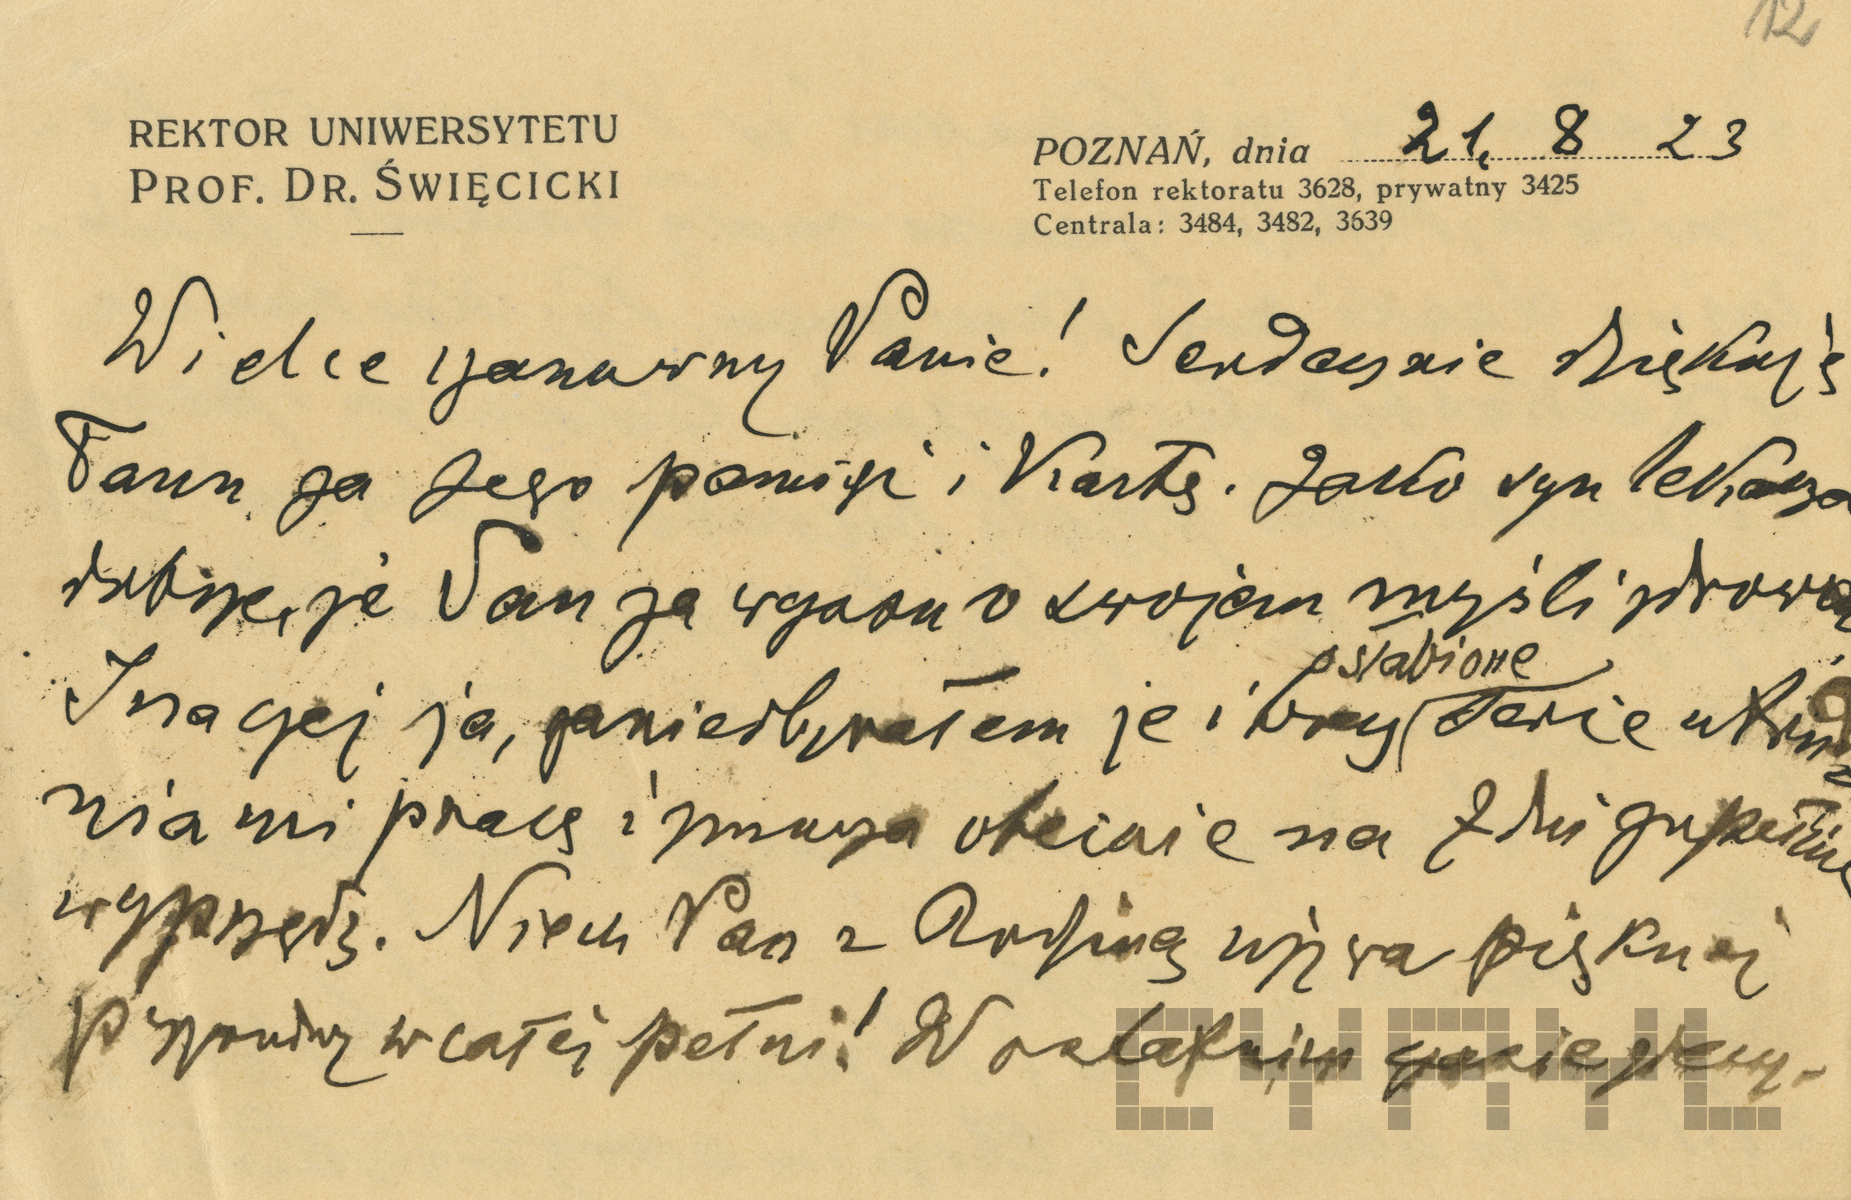 12
REKTOR UNIWERSYTETU
PROF. DR. ŚWIĘCICKI
POZNAŃ, dnia 21. 8 23
Telefon rektoratu 3628, prywatny 3425
Centrala: 3484, 3482, 3639
Wielce szanowny Panie! Serdecznie dziękuję
Panu za Jego pamięć i Kartę. Jako syn lekarza
dobrze, że Pan za wczasu o swojem myśli zdrowiu
Inaczej ja, zaniedbywałem je i
osłabione
serce utrud
nia mi pracę i zmusza obecnie na 7 dni zupełnie
wyprzędz. Niech Pan z Rodziną używa pięknej
przyrody w całej pełni! W ostatnim czasie
CYRYL